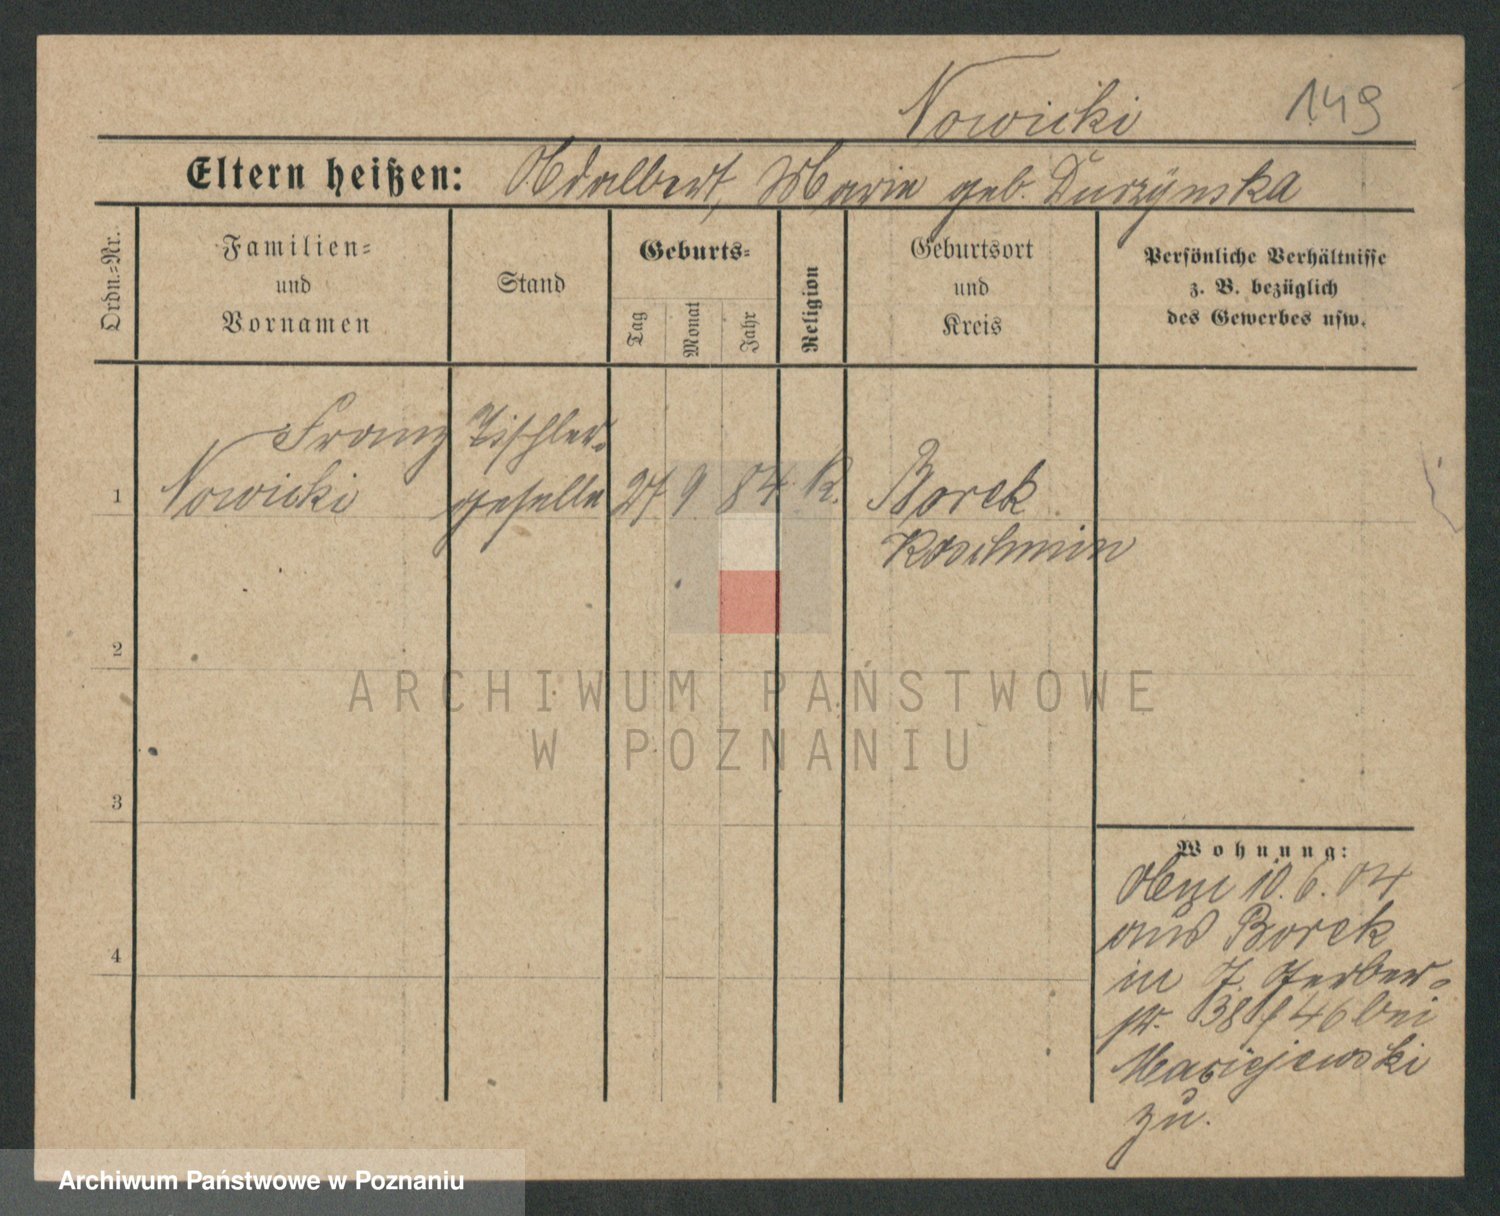 Nowicki 149
Eltern heißen: Adalbert, Marie geb. Durzynska
Ordn.=Nr.
Familien=
und
Vornamen
Stand
Geburts=
Tag
Monat
Jahr
Religion
Geburtsort
und
Kreis
Persönliche Verhältnisse
z. B. bezüglich
des Gewerbes usw.
Franz Tischler-
1 Nowicki geselle 27 9 84 K. Borek
Koschmin
2
3
4
Wohnung:
10.6.04
aus Borek
in J. Gerber-
str. 38/46 bei
Maciejewski
zu.
ARCHIWUM PAŃSTWOWE
W POZNANIU
Archiwum Państwowe w Poznaniu